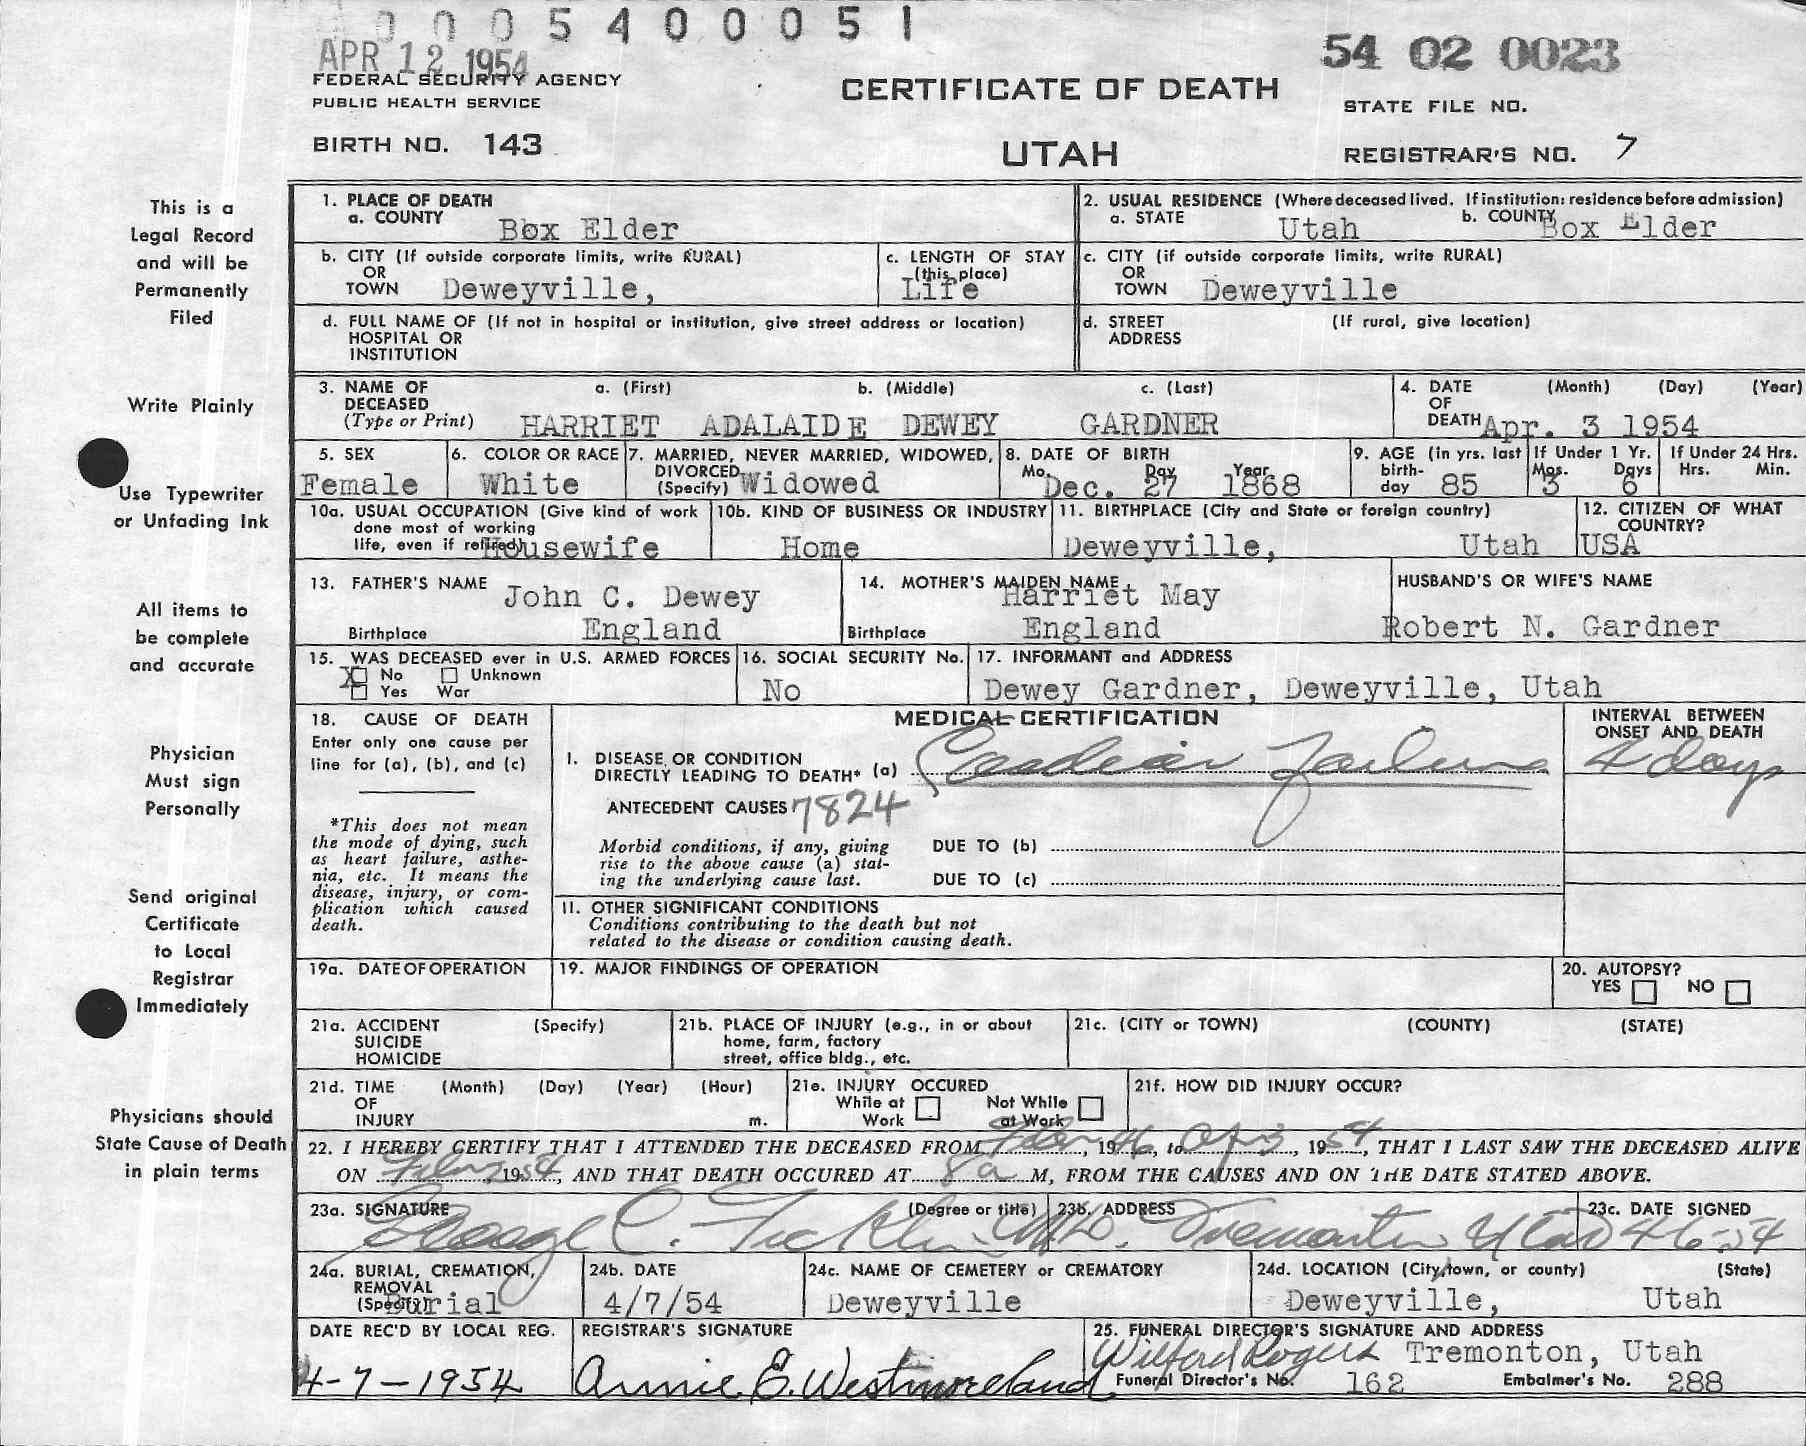 0 0 0 5 4 0 0 0 5 1
APR 12 1954
54 02 0023
FEDERAL SECURITY AGENCY
PUBLIC HEALTH SERVICE
CERTIFICATE OF DEATH
STATE FILE NO.
BIRTH NO. 143
UTAH
REGISTRAR'S NO. 7
This is a
Legal Record
and will be
Permanently
Filed
Write Plainly
Use Typewriter
or Unfading Ink
All items to
be complete
and accurate
Physician
Must sign
Personally
Send original
Certificate
to Local
Registrar
Immediately
Physicians should
State Cause of Death
in plain terms
1. PLACE OF DEATH
a. COUNTY Box Elder
2. USUAL RESIDENCE (Where deceased lived. If institution: residence before admission)
a. STATE Utah b. COUNTY Box Elder
b. CITY (If outside corporate limits, write RURAL)
OR
TOWN Deweyville,
c. LENGTH OF STAY
(this place)
Life
c. CITY (if outside corporate limits, write RURAL)
OR
TOWN Deweyville
d. FULL NAME OF (If not in hospital or institution, give street address or location)
HOSPITAL OR
INSTITUTION
d. STREET (If rural, give location)
ADDRESS
3. NAME OF a. (First) b. (Middle) c. (Last)
DECEASED
(Type or Print) HARRIET ADALAIDE DEWEY GARDNER
4. DATE (Month) (Day) (Year)
OF
DEATH Apr. 3 1954
5. SEX
Female
6. COLOR OR RACE
White
7. MARRIED, NEVER MARRIED, WIDOWED,
DIVORCED
(Specify) Widowed
8. DATE OF BIRTH
Mo. Day Year
Dec. 27 1868
9. AGE (In yrs. last
birth-
day 85
If Under 1 Yr.
Mos. Days
3 6
If Under 24 Hrs.
Hrs. Min.
10a. USUAL OCCUPATION (Give kind of work
done most of working
life, even if retired) Housewife
10b. KIND OF BUSINESS OR INDUSTRY
Home
11. BIRTHPLACE (City and State or foreign country)
Deweyville, Utah
12. CITIZEN OF WHAT
COUNTRY?
USA
13. FATHER'S NAME John C. Dewey
Birthplace England
14. MOTHER'S MAIDEN NAME
Harriet May
Birthplace England
HUSBAND'S OR WIFE'S NAME
Robert N. Gardner
15. WAS DECEASED ever in U.S. ARMED FORCES
X No Unknown
Yes War
16. SOCIAL SECURITY No.
No
17. INFORMANT and ADDRESS
Dewey Gardner, Deweyville, Utah
18. CAUSE OF DEATH
Enter only one cause per
line for (a), (b), and (c)
*This does not mean
the mode of dying, such
as heart failure, asthe-
nia, etc. It means the
disease, injury, or com-
plication which caused
death.
MEDICAL CERTIFICATION
I. DISEASE OR CONDITION
DIRECTLY LEADING TO DEATH* (a) Cardiac Failure
ANTECEDENT CAUSES 7824
Morbid conditions, if any, giving
rise to the above cause (a) stat-
ing the underlying cause last.
DUE TO (b)
DUE TO (c)
II. OTHER SIGNIFICANT CONDITIONS
Conditions contributing to the death but not
related to the disease or condition causing death.
INTERVAL BETWEEN
ONSET AND DEATH
4 days
19a. DATE OF OPERATION
19. MAJOR FINDINGS OF OPERATION
20. AUTOPSY?
YES NO
21a. ACCIDENT (Specify)
SUICIDE
HOMICIDE
21b. PLACE OF INJURY (e.g., in or about
home, farm, factory
street, office bldg., etc.
21c. (CITY or TOWN) (COUNTY) (STATE)
21d. TIME (Month) (Day) (Year) (Hour)
OF
INJURY m.
21e. INJURY OCCURED
While at Not While
Work at Work
21f. HOW DID INJURY OCCUR?
22. I HEREBY CERTIFY THAT I ATTENDED THE DECEASED FROM , 1946, to Apr 3, 1954, THAT I LAST SAW THE DECEASED ALIVE
ON 1954, AND THAT DEATH OCCURED AT 8a M, FROM THE CAUSES AND ON THE DATE STATED ABOVE.
23a. SIGNATURE (Degree or title)
George C. Ficklin M.D.
23b. ADDRESS
Tremonton Utah
23c. DATE SIGNED
4-6-54
24a. BURIAL, CREMATION,
REMOVAL
(Specify) Burial
24b. DATE
4/7/54
24c. NAME OF CEMETERY or CREMATORY
Deweyville
24d. LOCATION (City, town, or county) (State)
Deweyville, Utah
DATE REC'D BY LOCAL REG.
4-7-1954
REGISTRAR'S SIGNATURE
Annie E. Westmoreland
25. FUNERAL DIRECTOR'S SIGNATURE AND ADDRESS
Wilford Rogers Tremonton, Utah
Funeral Director's No. 162 Embalmer's No. 288